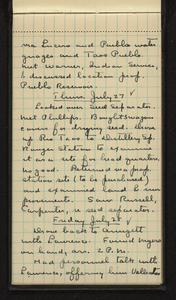 via Lucero and Pueblo water
gauges and Taos Pueblo
met Warner, Indian Service,
& discussed location prop.
Pueblo Reservoir.
Thurs. July 27 ✓
Looked over Seed Separator.
Met Phillips. Bought wagon
cover for drying seed. Drove
Rio Taos to
Ranger Station to examine
it as a site for headquarters,
no good. Returned to a prop.
station site (to be purchased)
and examined land & im-
provements. Saw Russell,
Carpenter, re seed separator.
Friday July 28 ✓
Drove back to
with Lawrence. Found
on hand, on 2 P.M.
Had personnel talk with
Lawrence, offering him